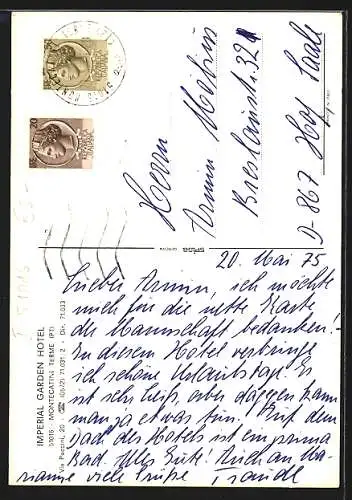 Herrn
Armin Möbius
Breslaustr. 32
D-867 Hof Saale
20. Mai 75
Lieber Armin, ich möchte
mich für die nette Karte
der Mannschaft bedanken!
In diesem Hotel verbringe
ich schöne Urlaubstage. Es
ist sehr heiß, aber dagegen kann
man ja etwas tun! Auf dem
Dach des Hotels ist ein prima
Bad. Alles Gute! Auch an Ma-
rianne viele Grüße,
IMPERIAL GARDEN HOTEL
51016 - MONTECATINI TERME (PT)
Via Puccini, 20 - ☎ (0572) 71.031 2 - Dir. 71.033